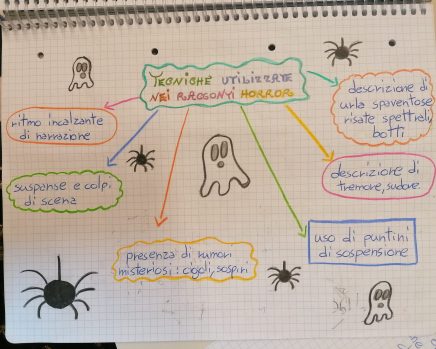 TECNICHE UTILIZZATE
NEI RACCONTI HORROR
descrizione di
urla spaventose
risate spettrali,
botti
ritmo incalzante
di narrazione
suspanse e colpi
di scena
descrizione di
tremore, sudore
presenza di rumori
misteriosi: cigolii, sospiri
uso di puntini
di sospensione